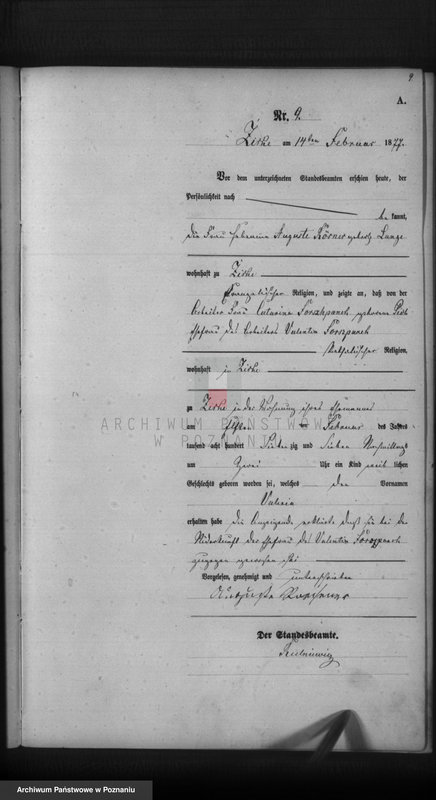 9
A.
Nr. 9.
Zirke am 14ten Februar 1877.
Vor dem unterzeichneten Standesbeamten erschien heute, der
Persönlichkeit nach
be kannt,
die Frau Hebamme Auguste Körner geborene Lange
wohnhaft zu Zirke
Evangelischer Religion, und zeigte an, daß von der
Arbeiter Frau Catarina geborene
Ehefrau des Arbeiters Valentin
Katholischer Religion,
wohnhaft in Zirke
zu Zirke in der Wohnung ihres Ehemannes
am ten Februar des Jahres
tausend acht hundert Siebenzig und Sieben Vormittags
um Zwei Uhr ein Kind weib lichen
Geschlechts geboren worden sei, welches den Vornamen
Valeria
erhalten habe die Anzeigende erklärte daß sie bei der
Niederkunft der Ehefrau des Valentin
zugegen gewesen sei
Vorgelesen, genehmigt und unterschrieben
Auguste
Der Standesbeamte.
ARCHIWUM PAŃSTWOWE
W POZNANIU
Archiwum Państwowe w Poznaniu